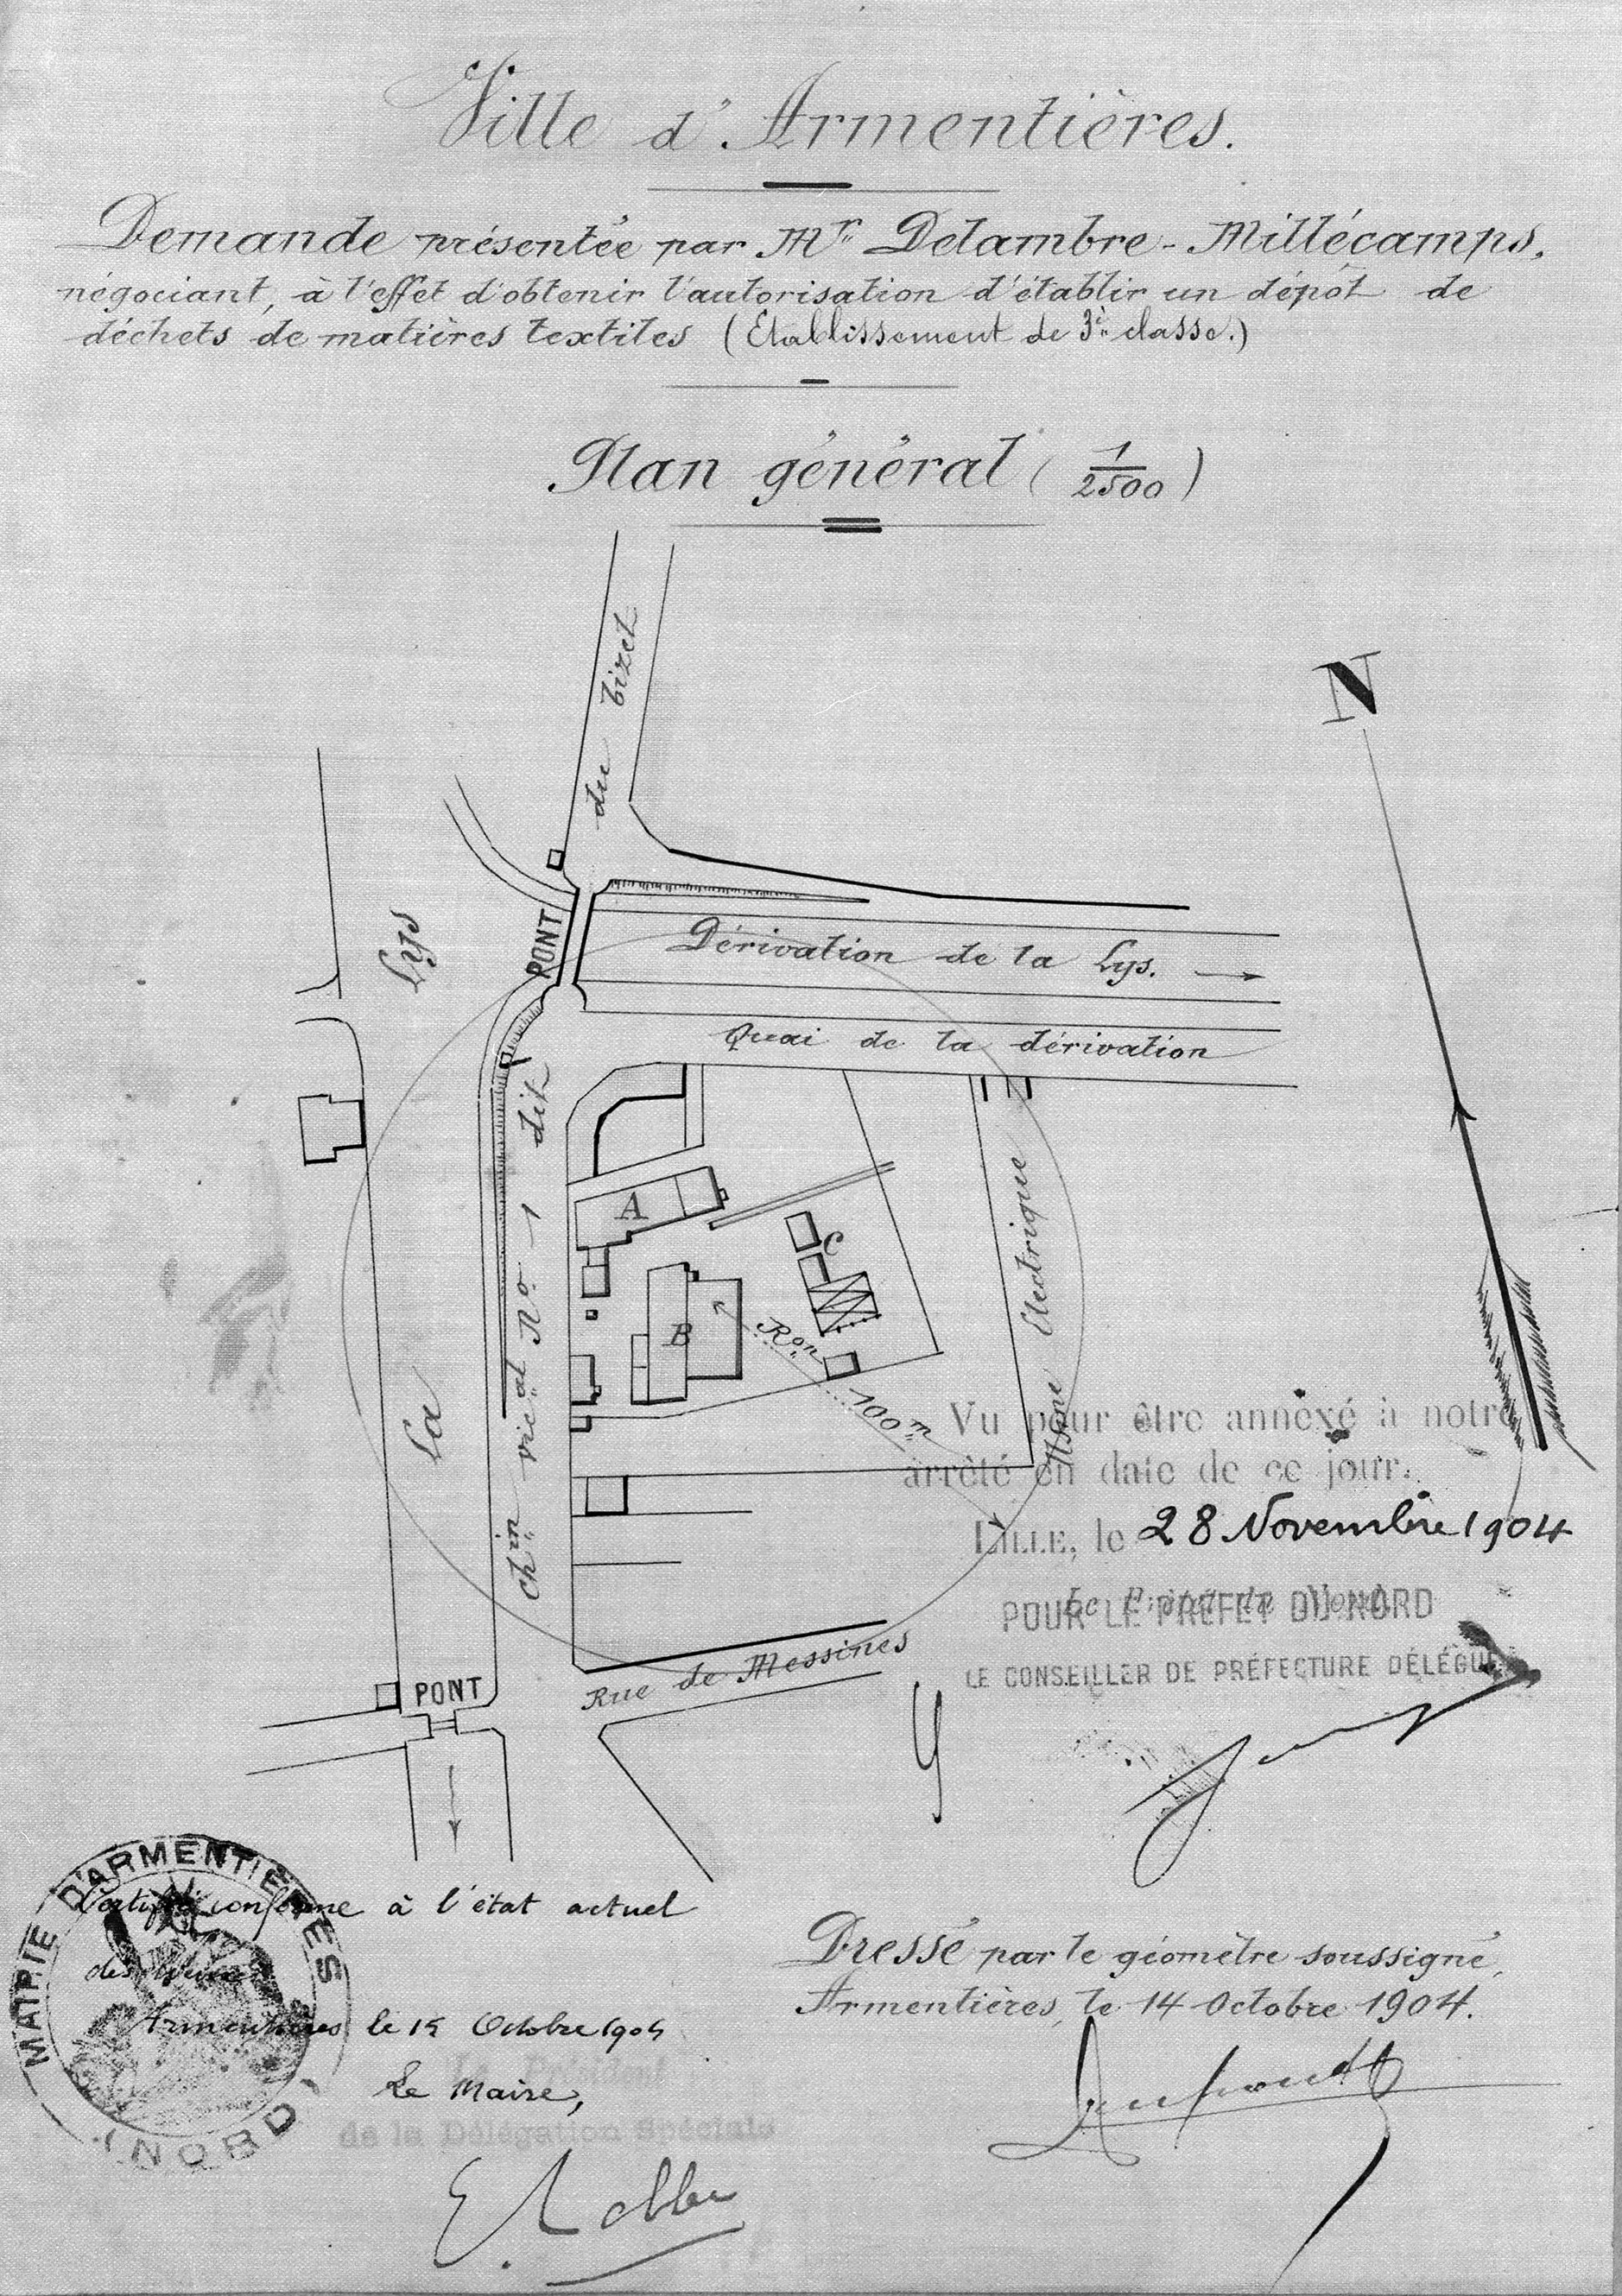 Ville d'Armentières.
Demande présentée par Mr. Delambre-Millécamps,
négociant, à l'effet d'obtenir l'autorisation d'établir un dépôt de
déchets de matières textiles (Etablissement de 3e classe.)
Plan général ( 1/2500 )
N
du bizet
Lys
PONT
Dérivation de la Lys.
Quai de la dérivation
Chin. vical No. 1 dit
A
B
C
Ron.
100m
Usine Electrique
La
Rue de Messines
PONT
Vu pour être annexé à notre
arrêté en date de ce jour.
LILLE, le 28 Novembre 1904
POUR LE PRÉFET DU NORD
LE CONSEILLER DE PRÉFECTURE DÉLÉGUÉ
MAIRIE D'ARMENTIÈRES
(NORD)
Certifié conforme à l'état actuel
des lieux
Armentières le 15 Octobre 1904
Le Président
Le Maire,
de la Délégation Spéciale
Dressé par le géomètre soussigné,
Armentières, le 14 Octobre 1904.